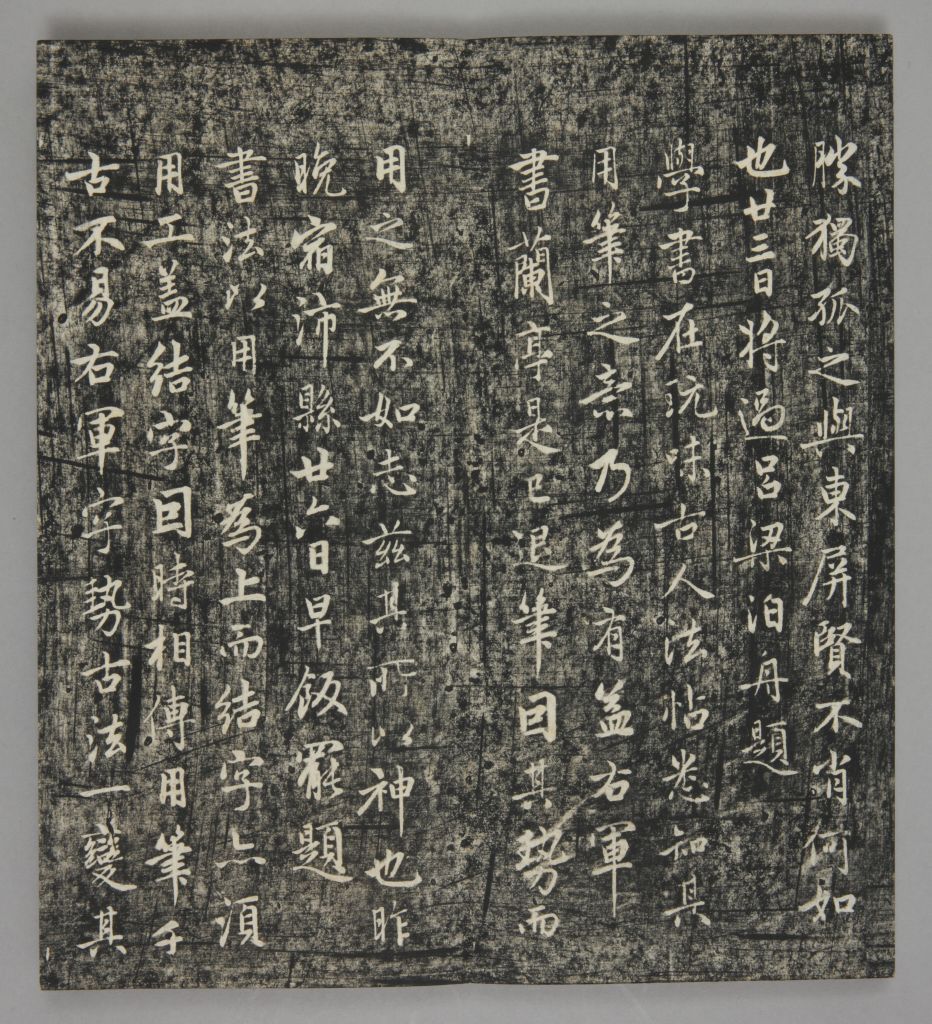 朕獨孤之與東屏賢不肖何如
也廿三日將過呂梁泊舟題
學書在玩味古人法帖悉知其
用筆之意乃為有益右軍
書蘭亭是已退筆因其勢而
用之無不如志茲其所以神也昨
晚宿沛縣廿六日早飯罷題
書法以用筆為上而結字亦須
用工盖結字因時相傳用筆千
古不易右軍字勢古法一變其